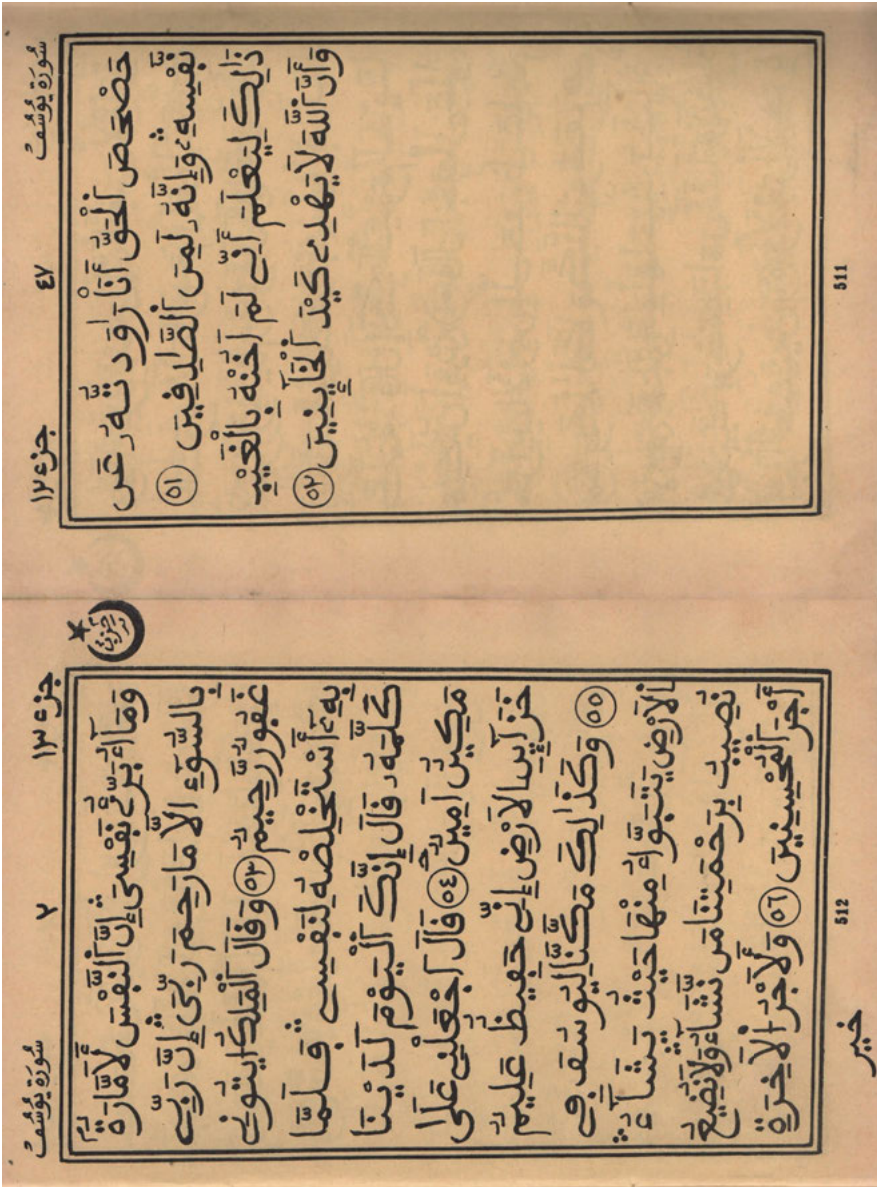 سُورَةُ يُوسُفَ ٤٧ جزء ١٢
حَصْحَصَ ٱلْحَقُّ أَنَا۠ رَٰوَدتُّهُۥ عَن
نَّفْسِهِۦ وَإِنَّهُۥ لَمِنَ ٱلصَّٰدِقِينَ ٥١
ذَٰلِكَ لِيَعْلَمَ أَنِّے لَمْ أَخُنْهُ بِالْغَيْبِ
وَأَنَّ ٱللَّهَ لَا يَهْدِے كَيْدَ ٱلْخَآئِنِينَ ٥٢
511
جزء ١٣ ٢ سُورَةُ يُوسُفَ
وَمَآ أُبَرِّئُ نَفْسِىٓ إِنَّ ٱلنَّفْسَ لَأَمَّارَةٌۢ
بِالسُّوٓءِ إِلَّا مَا رَحِمَ رَبِّىٓ إِنَّ رَبِّے
غَفُورٌ رَّحِيمٌ ٥٣ وَقَالَ ٱلْمَلِكُ ٱئْتُونِے
بِهِۦٓ أَسْتَخْلِصْهُ لِنَفْسِے فَلَمَّا
كَلَّمَهُۥ قَالَ إِنَّكَ ٱلْيَوْمَ لَدَيْنَا
مَكِينٌ أَمِينٌ ٥٤ قَالَ ٱجْعَلْنِے عَلَىٰ
خَزَآئِنِ ٱلْأَرْضِ إِنِّے حَفِيظٌ عَلِيمٌ
٥٥ وَكَذَٰلِكَ مَكَّنَّا لِيُوسُفَ فِے
الْأَرْضِ يَتَبَوَّأُ مِنْهَا حَيْثُ يَشَآءُ
نُصِيبُ بِرَحْمَتِنَا مَن نَّشَآءُ وَلَا نُضِيعُ
أَجْرَ ٱلْمُحْسِنِينَ ٥٦ وَلَأَجْرُ ٱلْأَخِرَةِ
512
خير